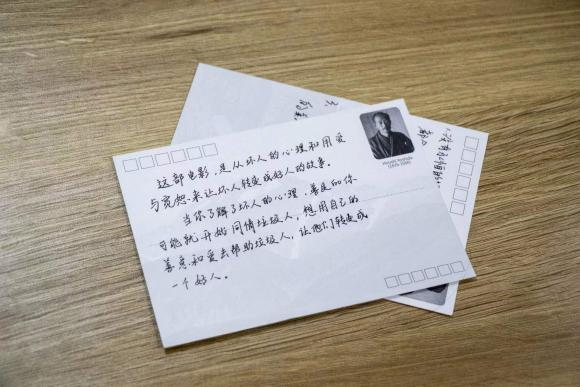 这部电影,是从坏人的心理和用爱
与宽恕.来让坏人转变成好人的故事。
当你了解了坏人的心理,善良的你
可能就开始同情垃圾人,想用自己的
善意和爱去帮助垃圾人,让他们转变成
一个好人。